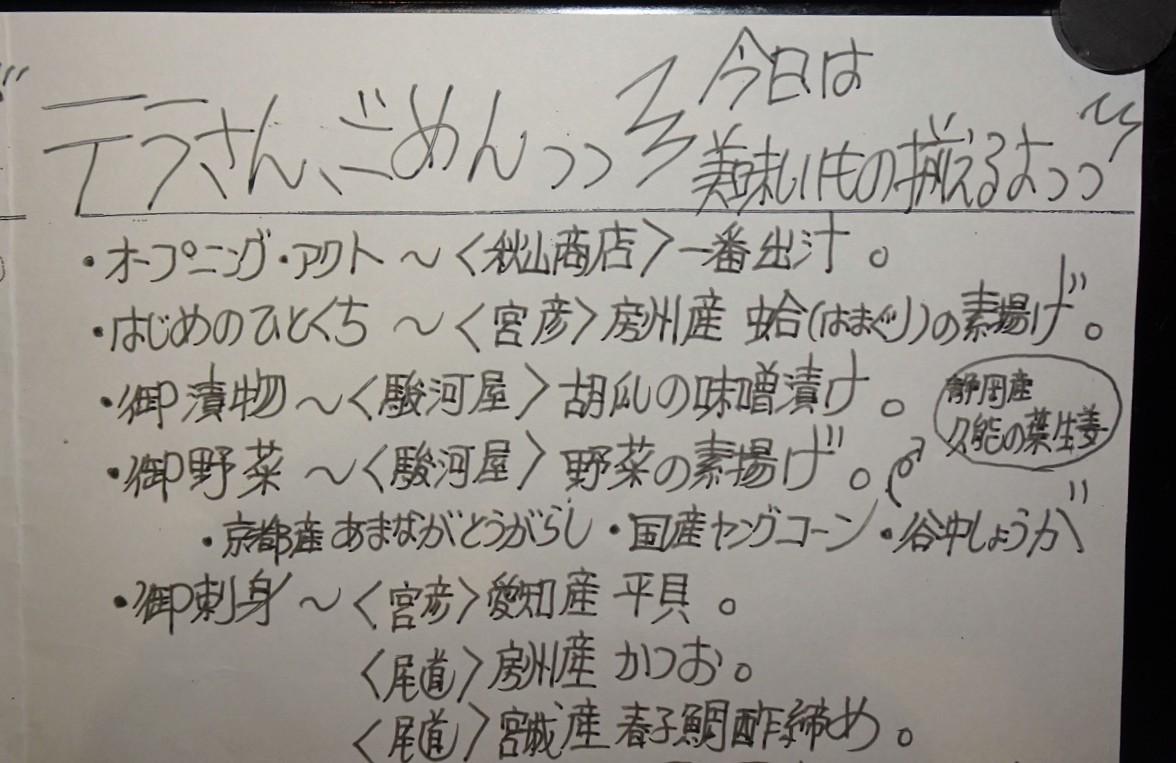 テラさん、ごめんっっ
今日は
美味しいもの揃えるよっっ
・オープニング・アクト〜〈秋山商店〉一番出汁。
・はじめのひとくち〜〈宮彦〉房州産 蛤(はまぐり)の素揚げ。
・御漬物〜〈駿河屋〉胡瓜の味噌漬け。
・御野菜〜〈駿河屋〉野菜の素揚げ。
静岡産
久能の葉生姜
・京都産あまながとうがらし・国産ヤングコーン・谷中しょうが
・御刺身〜〈宮彦〉愛知産 平貝。
〈尾道〉房州産 かつお。
〈尾道〉宮城産 春子鯛酢締め。